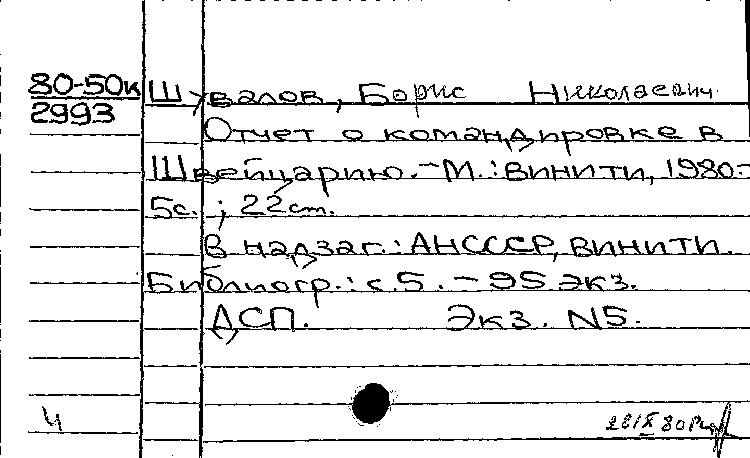 80-50к
2993
Шувалов, Борис Николаевич.
Отчет о командировке в
Швейцарию. - М.: ВИНИТИ, 1980.-
5с. ; 22 cm.
В надзаг.: АНСССР, ВИНИТИ.
Библиогр.: с.5. - 95 экз.
ДСП. Экз. N5.
Ч